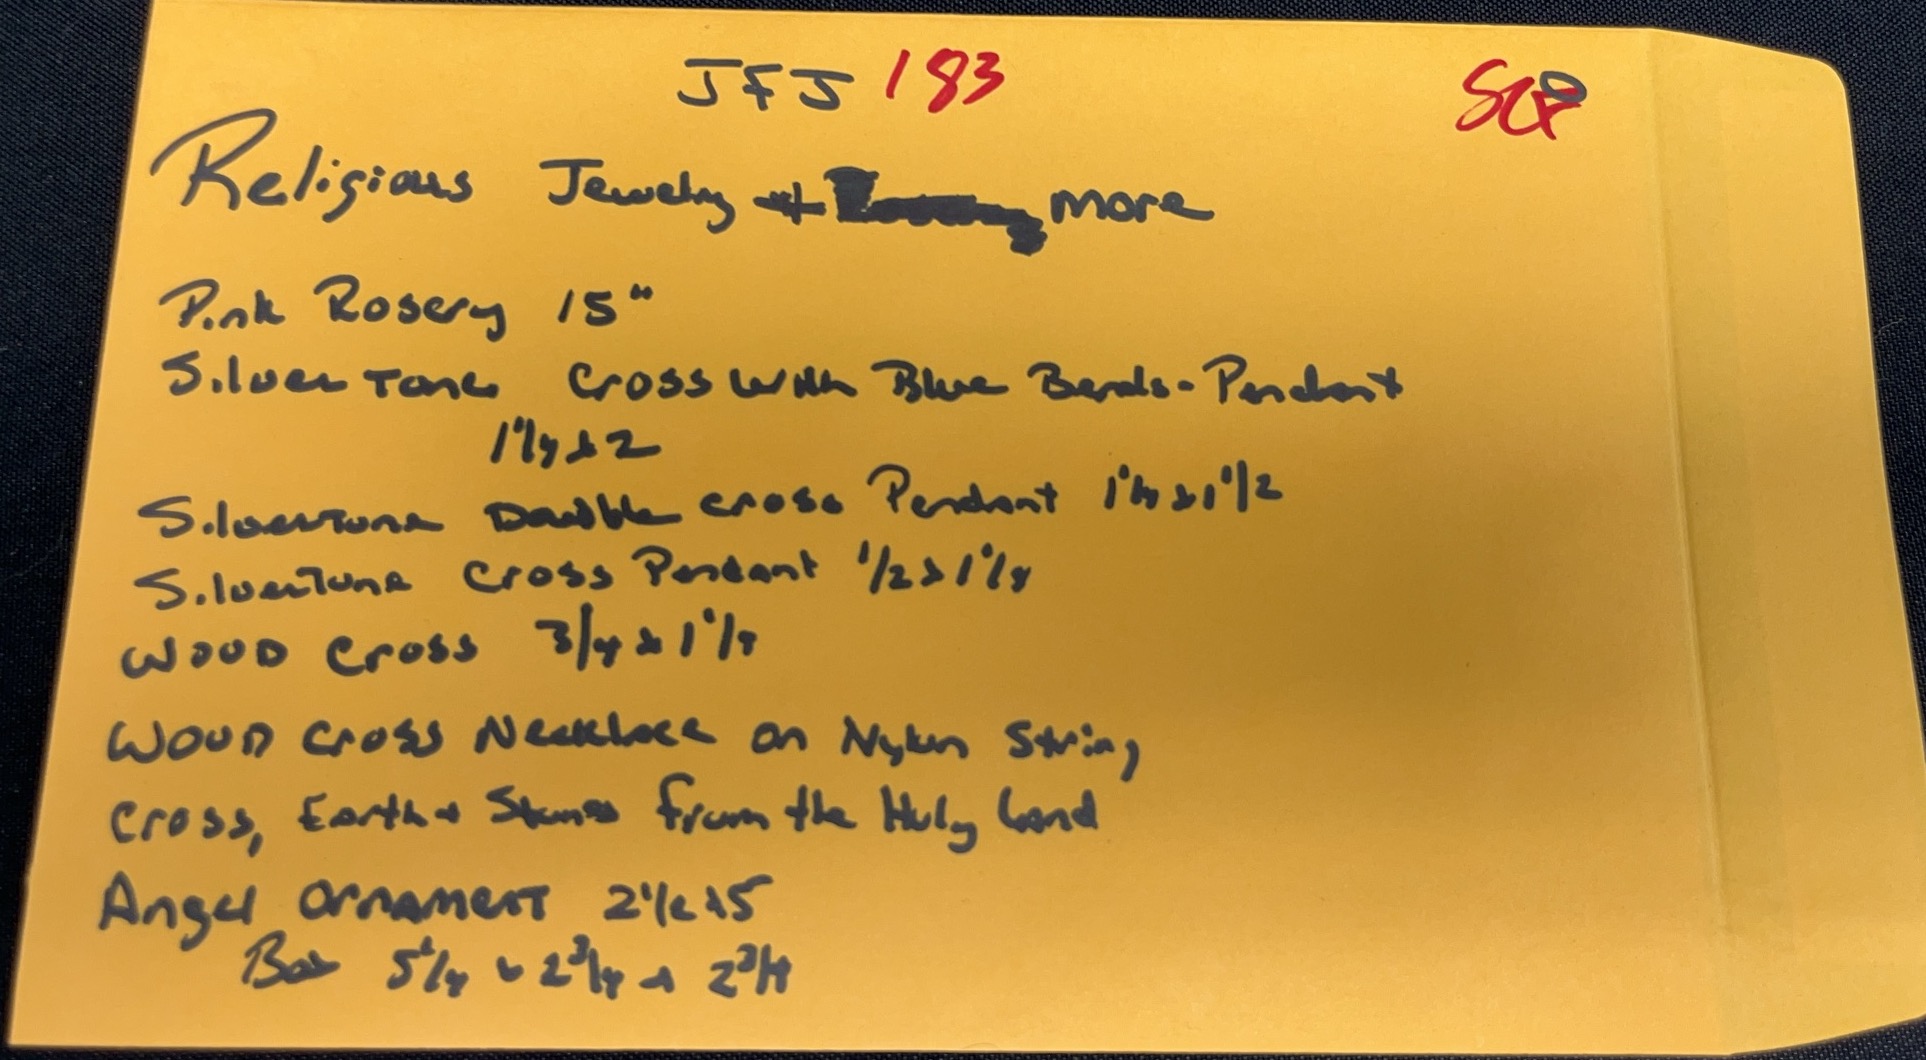 JFJ 183
Religious Jewelry + more
Pink Rosery 15"
Silver Tone Cross with Blue Beads - Pendant
1 1/4 x 2
Silvertone Double cross Pendant 1 1/4 x 1 1/2
Silvertone Cross Pendant 1/2 x 1 1/4
WOOD Cross 3/4 x 1 1/4
WOOD Cross Necklace on Nylon String
Cross, Earth + Stones from the Holy Land
Angel Ornament 2 1/2 x 5
Box 5 1/4 x 2 3/4 x 2 3/4